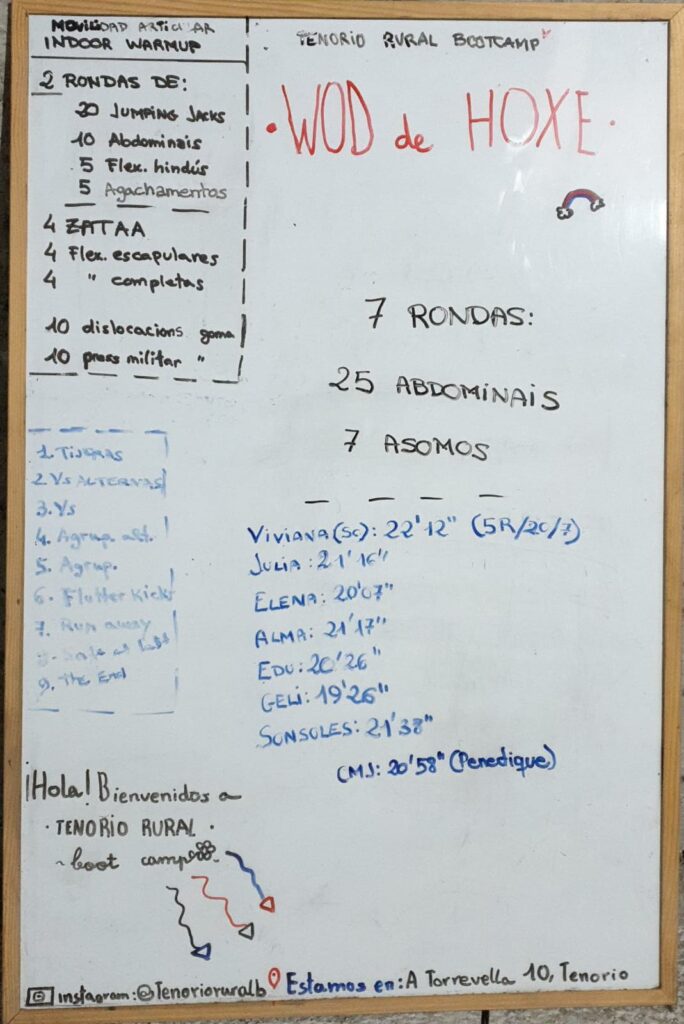 MOVILIDAD ARTICULAR
INDOOR WARMUP
2 RONDAS DE:
20 JUMPING JACKS
10 Abdominais
5 Flex. hindús
5 Agachamentos
4 ZATAA
4 Flex. escapulares
4 " completas
10 dislocacions goma
10 press militar "
1. TIJERAS
2. Vs ALTERNAS
3. Vs
4. Agrup. alt.
5. Agrup.
6. Flutter Kicks
7. Run away
9. The End
TENORIO RURAL BOOTCAMP
·WOD de HOXE·
7 RONDAS:
25 ABDOMINAIS
7 ASOMOS
VIVIANA (SC): 22'12" (5R/20/7)
JULIA: 21'16"
ELENA: 20'07"
ALMA: 21'17"
EDU: 20'26"
GELI: 19'26"
SONSOLES: 21'38"
CMJ: 20'58" (Penedique)
¡Hola! Bienvenidos a
· TENORIO RURAL ·
~ boot camp
instagram: @Tenorioruralb
Estamos en: A Torrevella 10, Tenorio